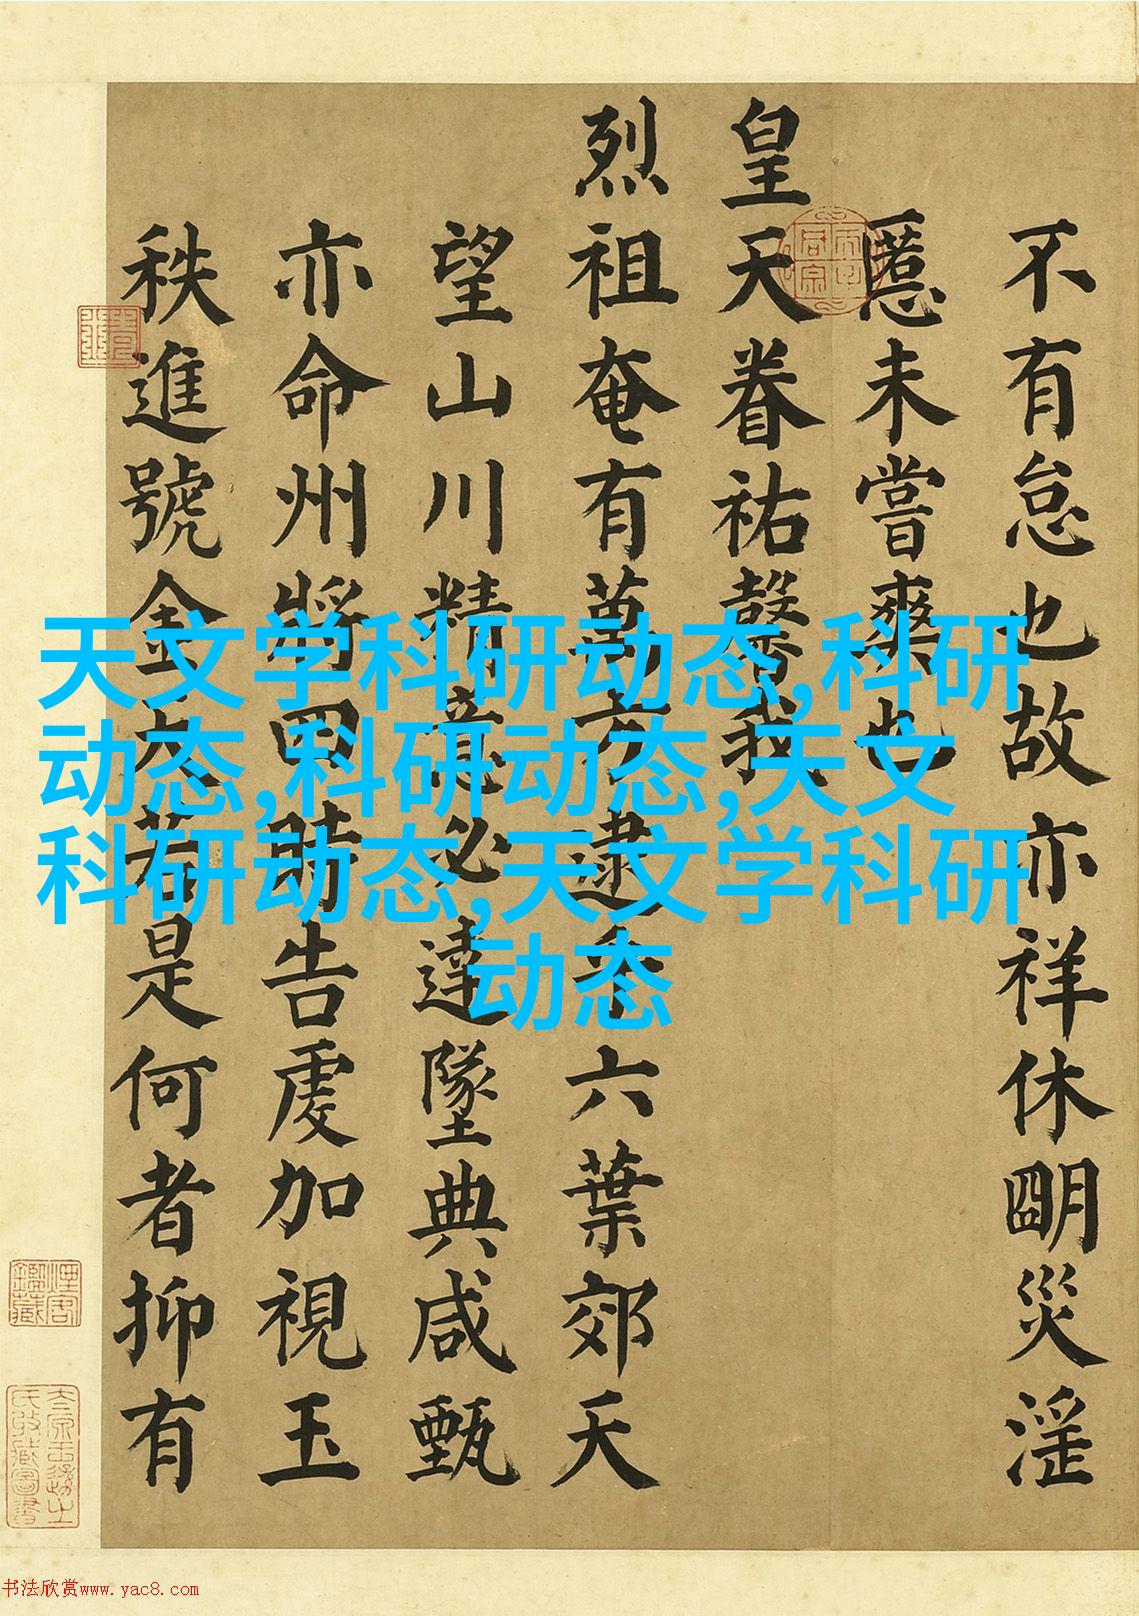 不有怠也故亦祥休朙災淫
慝未嘗爽也
皇天眷祐馨我
烈祖奄有萬方逮今六葉郊天
望山川精意必達墜典咸甄
亦命州將四時告虔加視玉
秩進號金天若是何者抑有
天文学科研动态,科研
动态,科研动态,天文
科研动态,天文学科研
动态
书法欣赏www.yac8.com